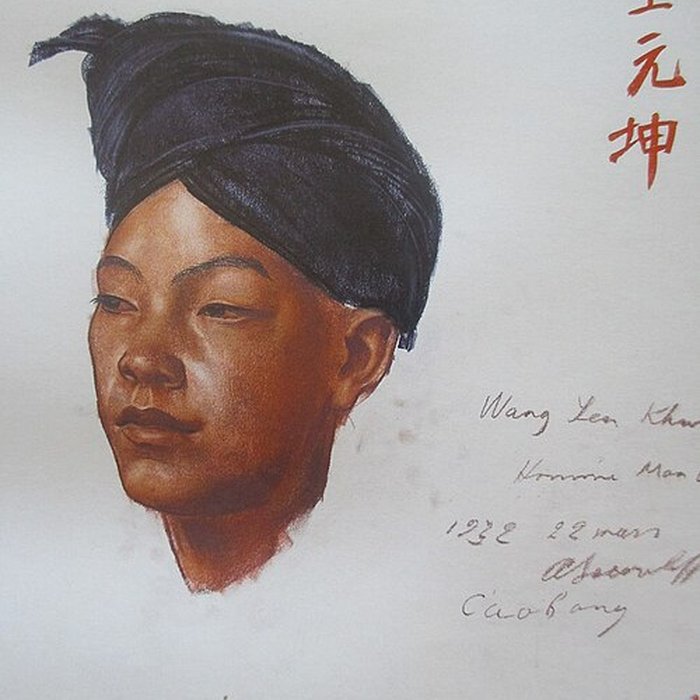 元
坤
Wang Yen Khu
Homme Man
1932 22 mars
AIacovleff
Caobang